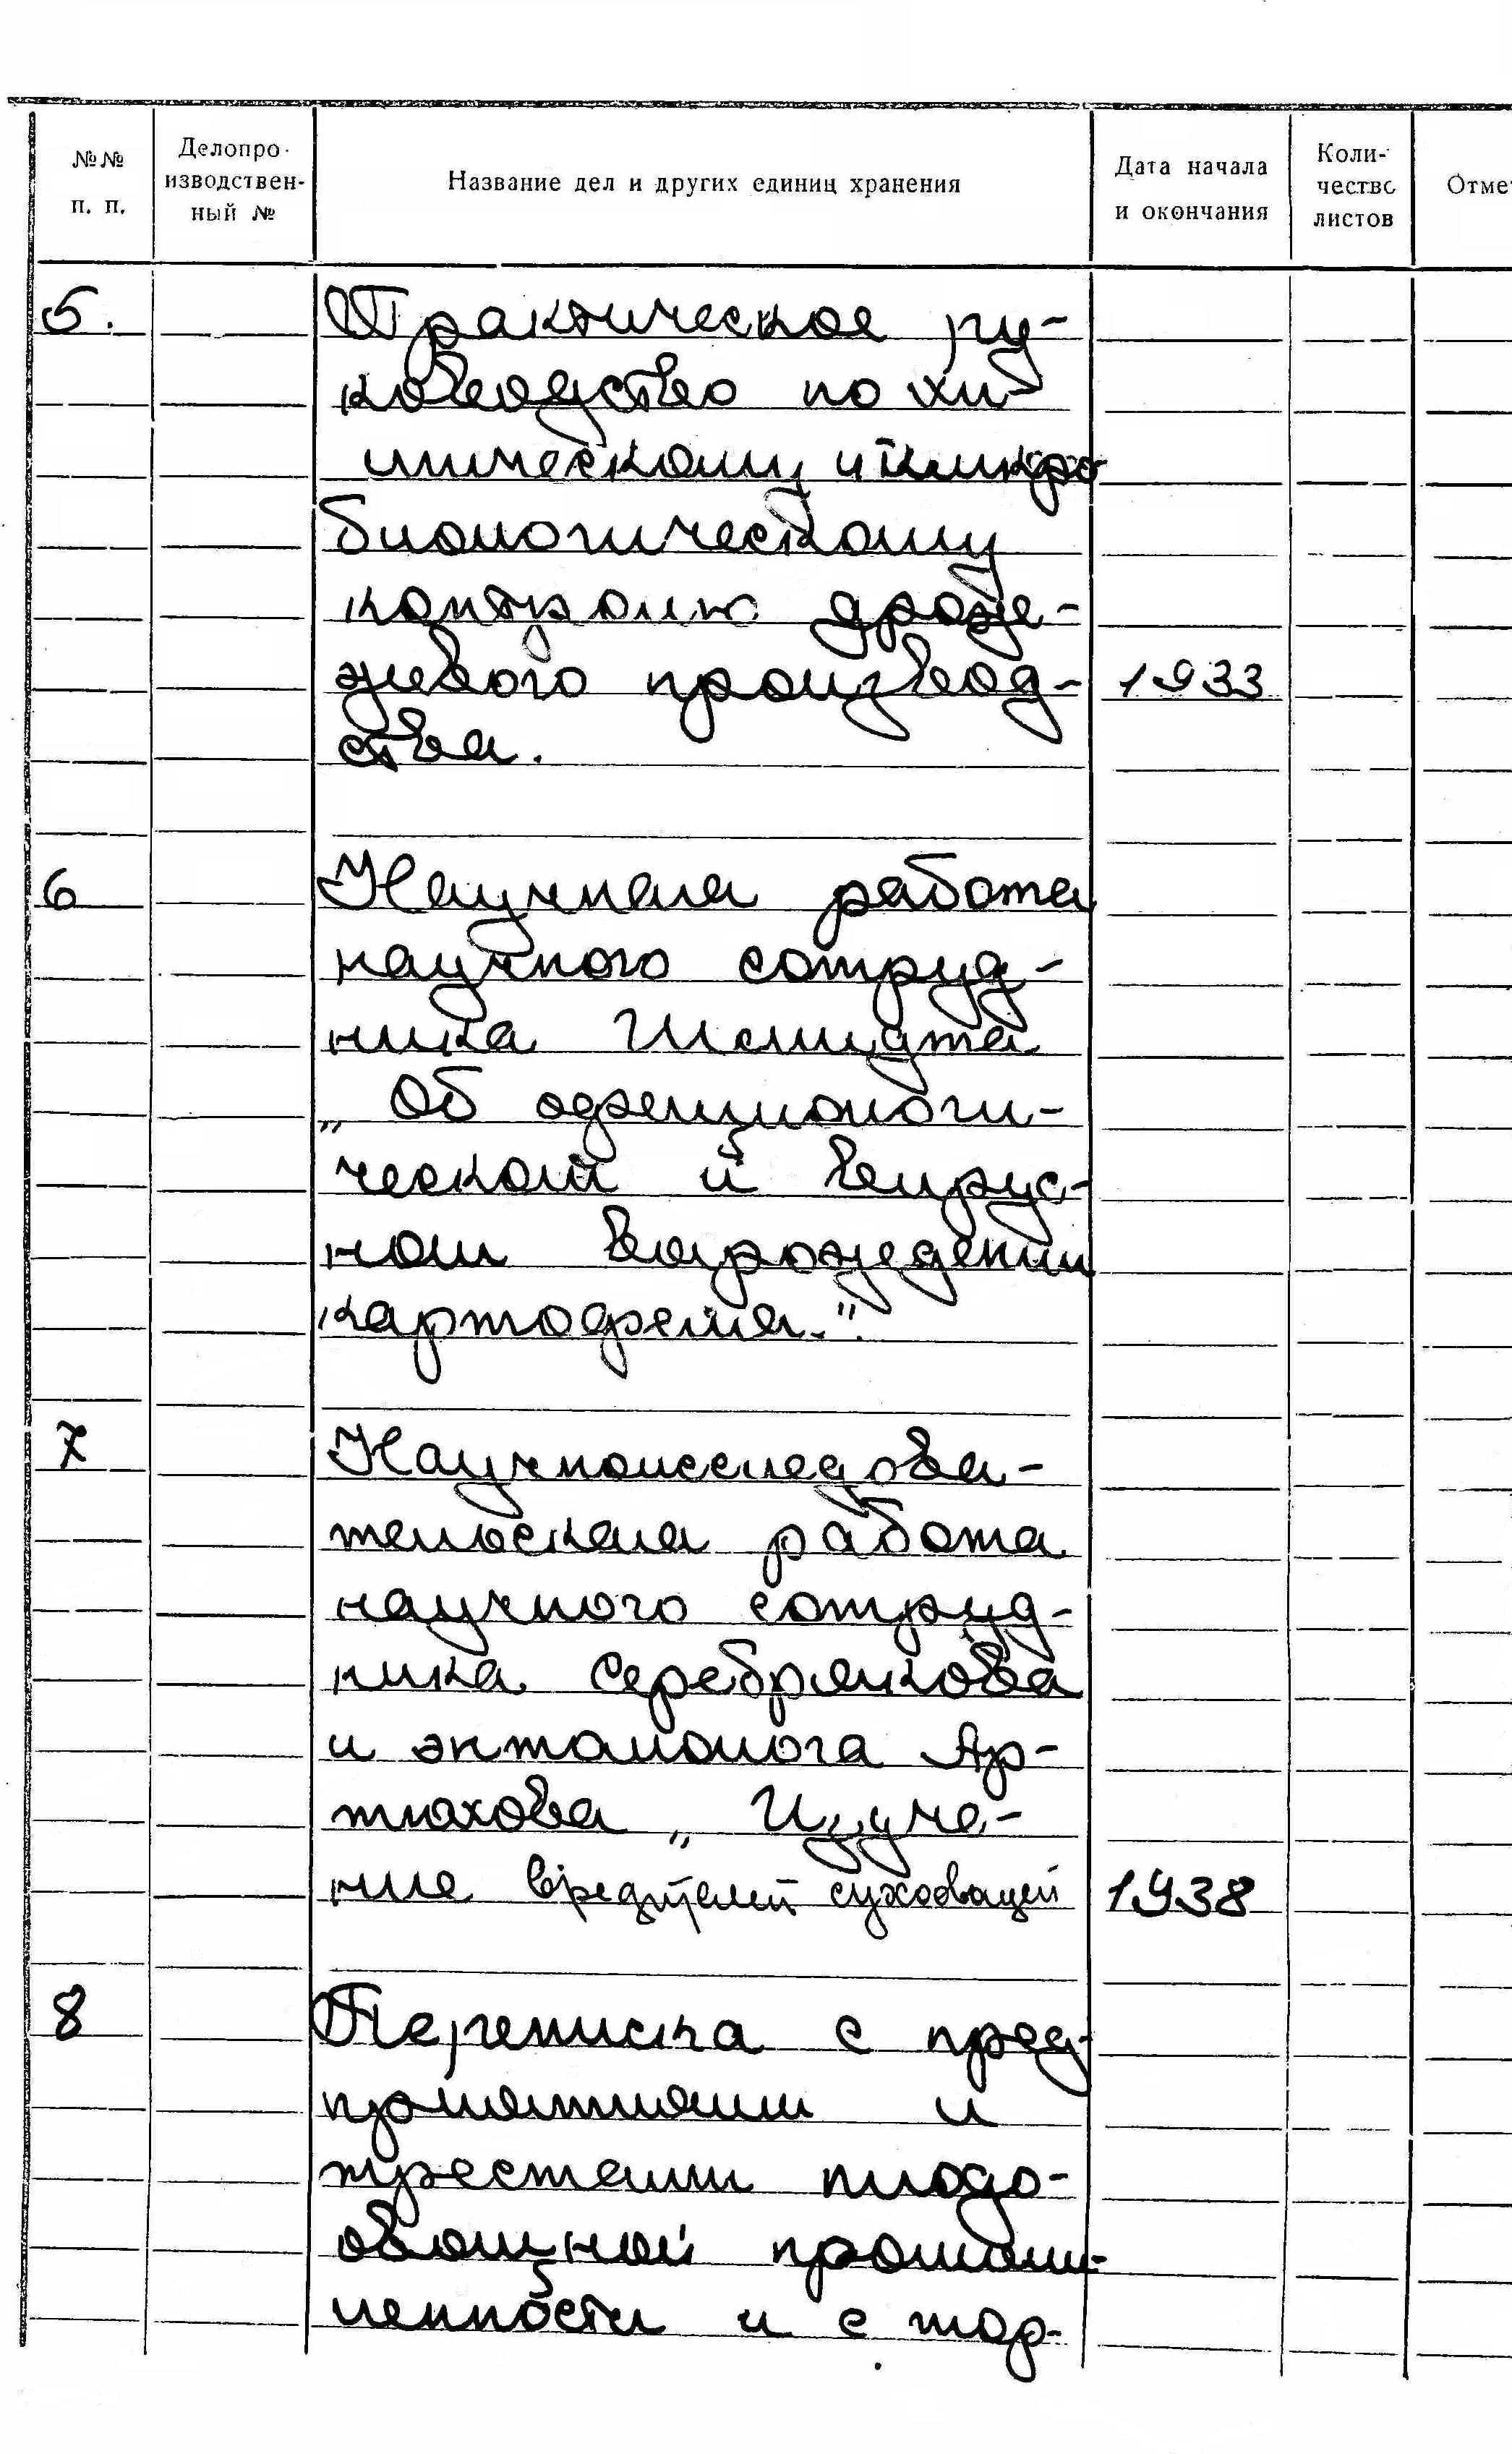 №№ п. п.
Делопро-
изводствен-
ный №
Название дел и других единиц хранения
Дата начала
и окончания
Коли-
чество
листов
Отме
5.
Практическое ру-
ководство по хи-
мическому и микро
биологическому
контролю дрож-
жевого производ- 1933
ства.
6
Научная работа
научного сотруд-
ника Шмидта
„Об
ческом и вирус-
ном вырождении
картофеля."
7
Научноисследова-
тельская работа
научного сотруд-
ника Серебрякова
и энтомолога Ар-
тюхова „Изуче-
ние вредителей сухоовощей 1938
8
Переписка с пред-
приятиями и
трестами плодо-
овощной промыш-
ленности и с тор-